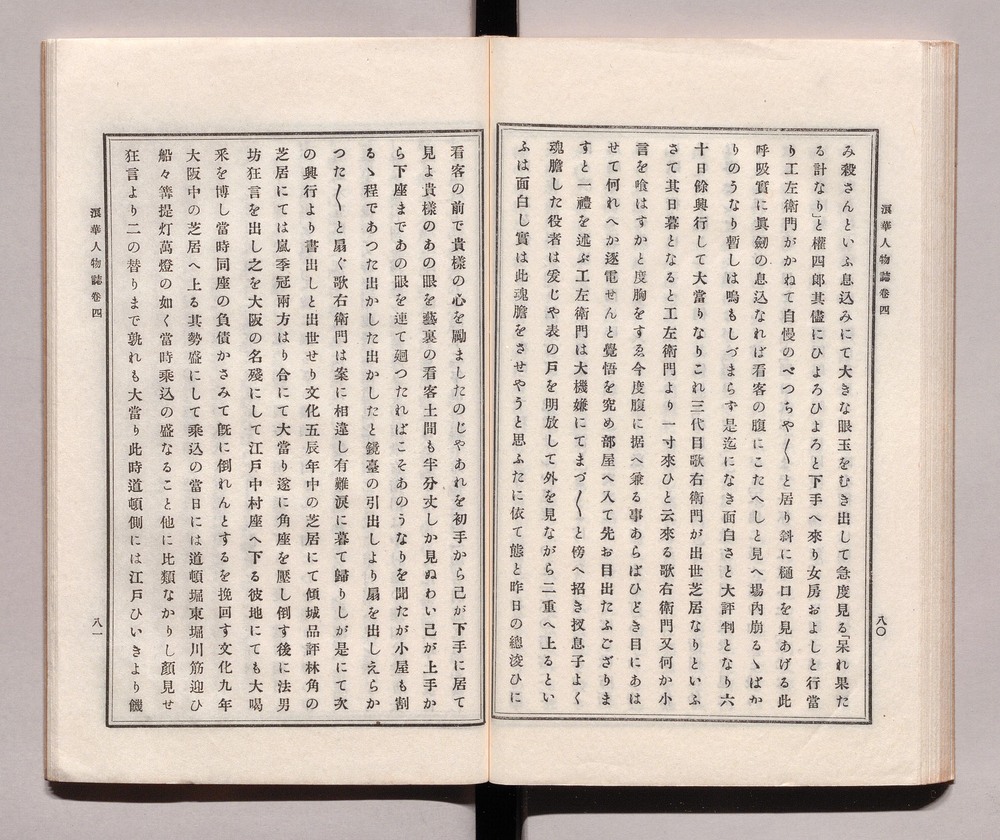 浪華人物誌卷四
八〇
み殺さんといふ息込みにて大きな眼玉をむき出して急度見る「呆れ果た
る計なり」と權四郎其儘にひよろひよろと下手へ來り女房およしと行當
り工左衞門がかねて自慢のべつちや〳〵と居り斜に樋口を見あげる此
呼吸實に眞劒の息込なれば看客の腹にこたへしと見へ場内崩るゝばか
りのうなり暫しは鳴もしづまらず是迄になき面白さと大評判となり六
十日餘興行して大當りなりこれ三代目歌右衞門が出世芝居なりといふ
さて其日暮となると工左衞門より一寸來ひと云來る歌右衞門又何か小
言を喰はすかと度胸をすゑ今度腹に据へ兼る事あらばひどき目にあは
せて何れへか逐電せんと覺悟を究め部屋へ入て先お目出たふござりま
すと一禮を述ぶ工左衞門は大機嫌にてまづ〳〵と傍へ招き扨息子よく
魂膽した役者は爰じや表の戸を明放して外を見ながら二重へ上るとい
ふは面白し實は此魂膽をさせやうと思ふたに依て態と昨日の總浚ひに
看客の前で貴樣の心を勵ましたのじやあれを初手から己が下手に居て
見よ貴樣のあの眼を藝裏の看客土間も半分丈しか見ぬわい己が上手か
ら下座まであの眼を連て廻つたればこそあのうなりを聞たが小屋も割
るゝ程であつた出かした出かしたと鏡臺の引出しより扇を出しえらか
つた〳〵と扇ぐ歌右衞門は案に相違し有難淚に暮て歸りしが是にて次
の興行より書出しと出世せり文化五辰年中の芝居にて傾城品評林角の
芝居にては嵐季冠兩方はり合にて大當り遂に角座を壓し倒す後に法男
坊狂言を出し之を大阪の名殘にして江戸中村座へ下る彼地にても大喝
釆を博し當時同座の負債かさみて旣に倒れんとするを挽回す文化九年
大阪中の芝居へ上る其勢盛にして乘込の當日には道頓堀東堀川筋迎ひ
船々篝提灯萬燈の如く當時乘込の盛なること他に比類なかりし顏見せ
狂言より二の替りまで孰れも大當り此時道頓側には江戸ひいきより饑
浪華人物誌卷四
八一